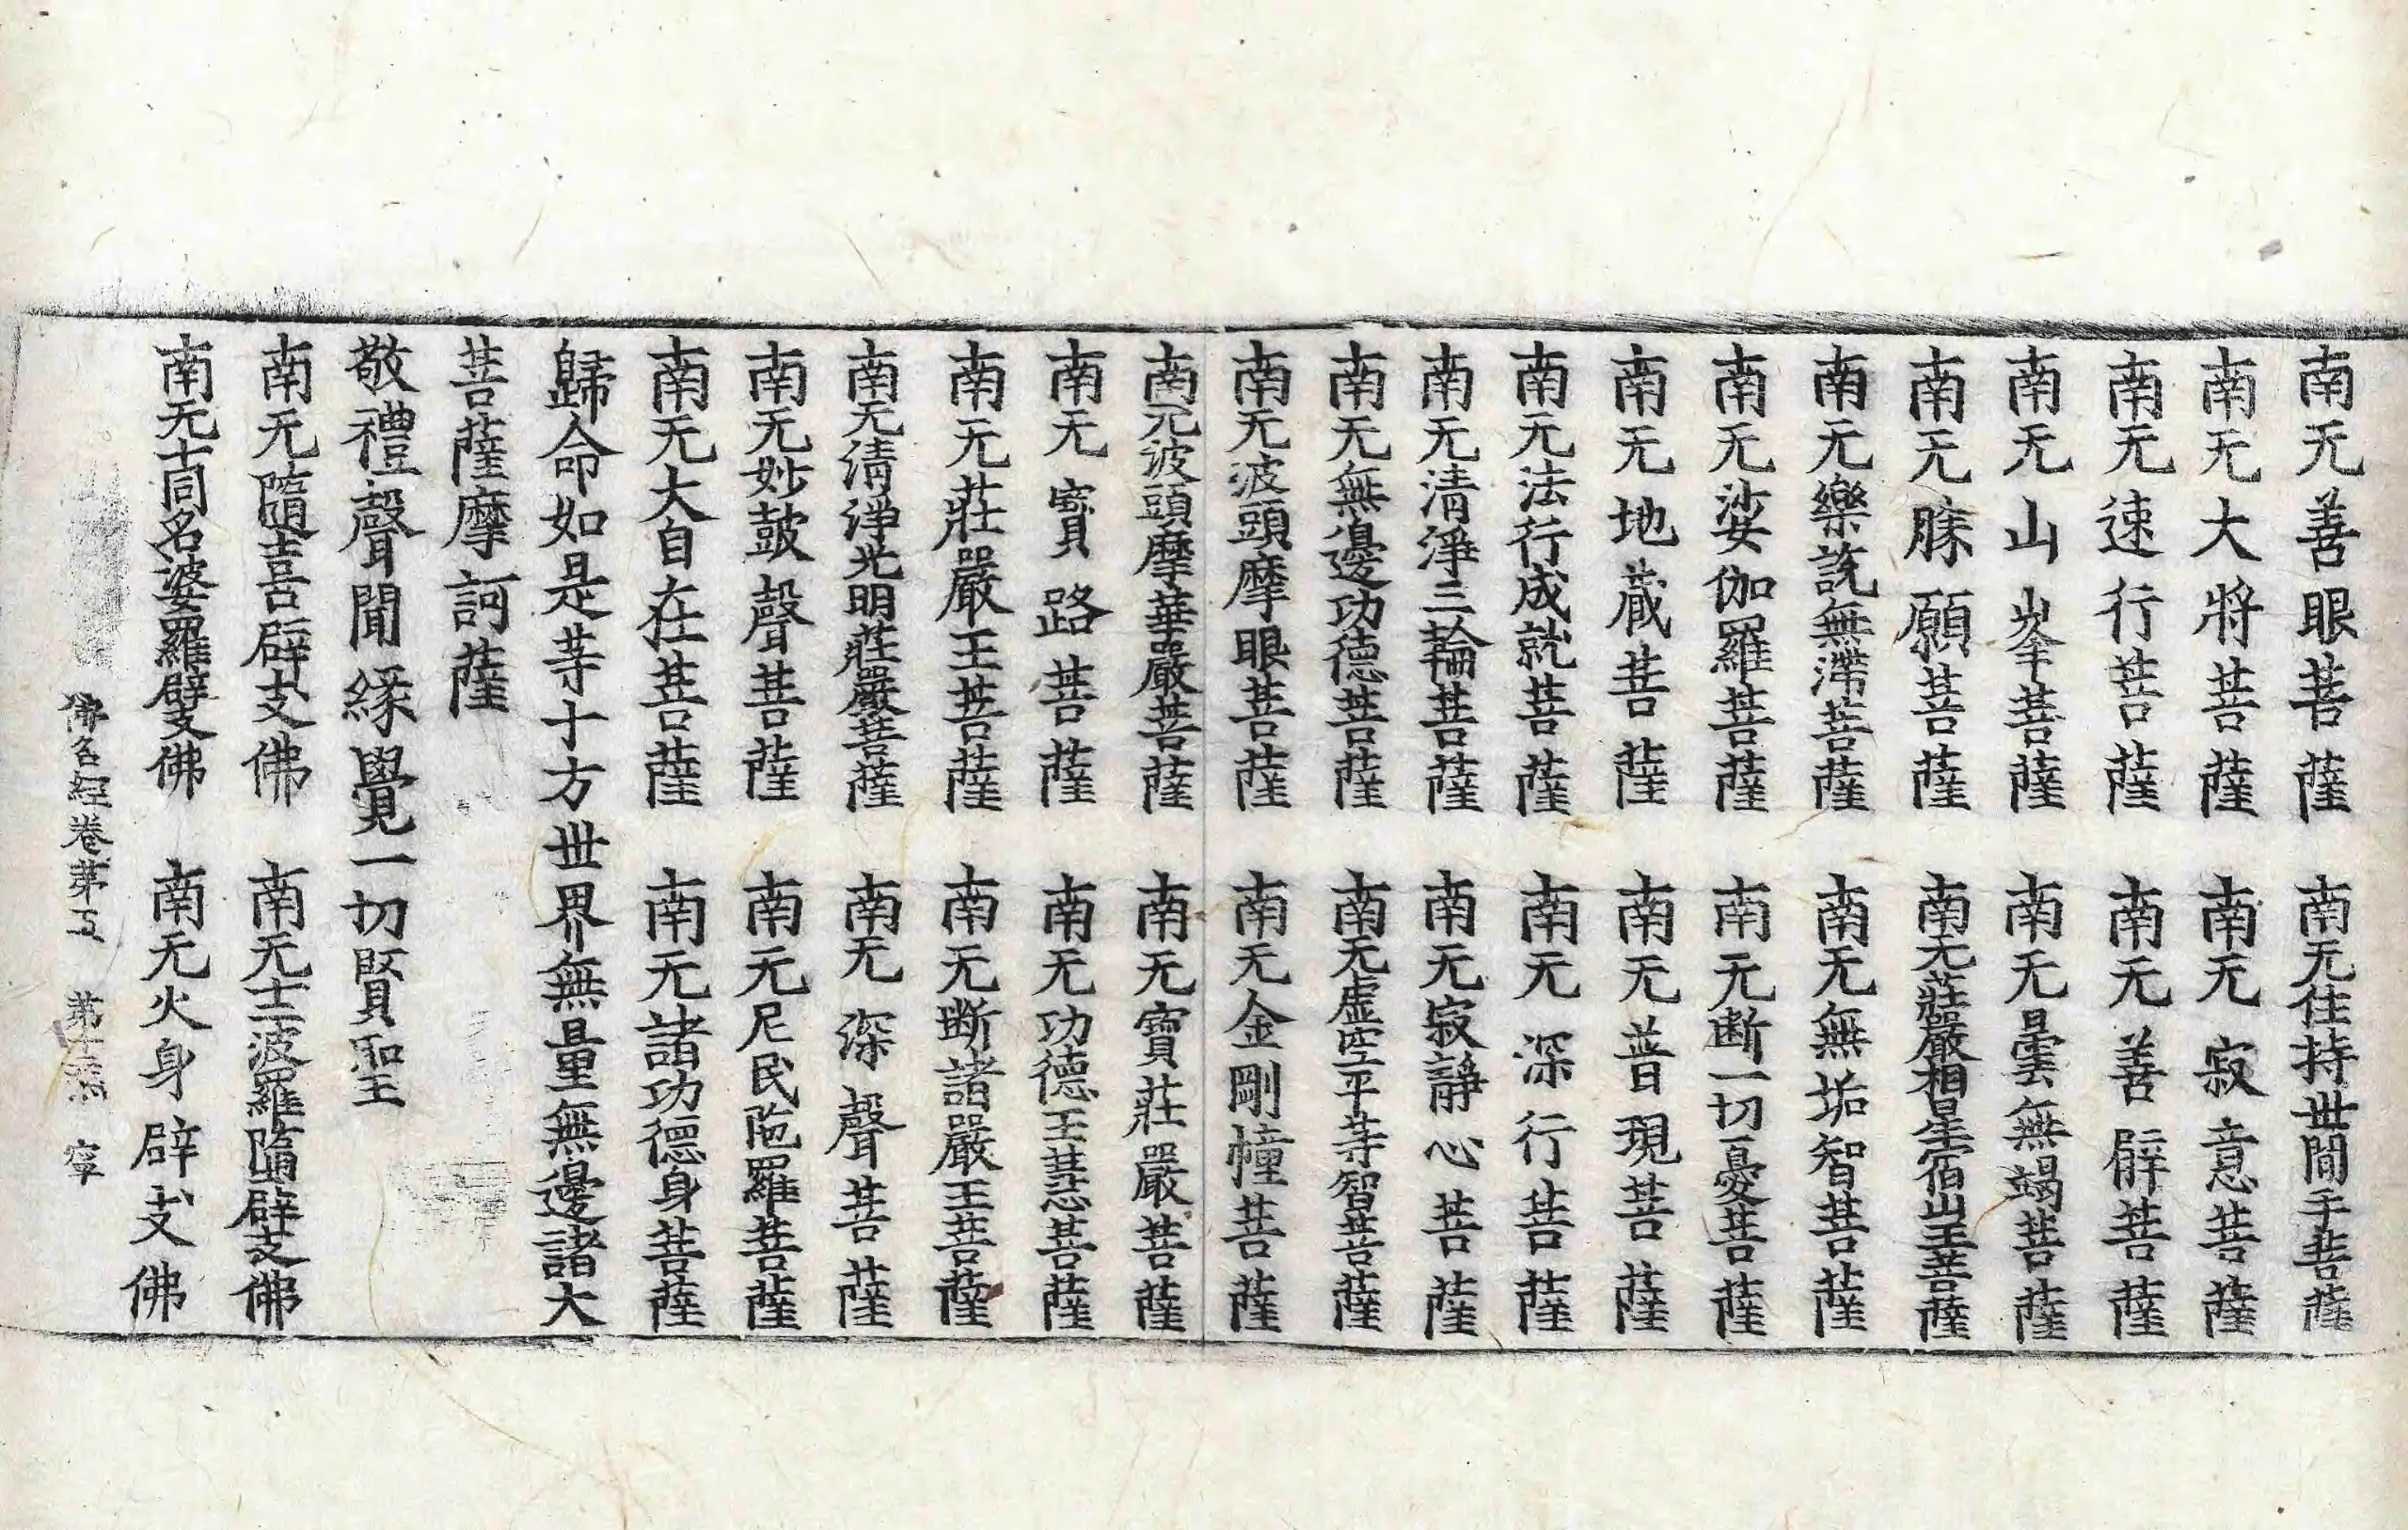 南无善眼菩薩 南无住持世間手菩薩
南无大將菩薩 南无寂意菩薩
南无速行菩薩 南无善臂菩薩
南无山峯菩薩 南无曇無竭菩薩
南无勝願菩薩 南无莊嚴相星宿山王菩薩
南无樂說無滯菩薩 南无無垢智菩薩
南无娑伽羅菩薩 南无断一切憂菩薩
南无地藏菩薩 南无普現菩薩
南无法行成就菩薩 南无深行菩薩
南无清淨三輪菩薩 南无寂靜心菩薩
南无無邊功德菩薩 南无虛空平等智菩薩
南无波頭摩眼菩薩 南无金剛幢菩薩
南无波頭摩華嚴菩薩 南无寶莊嚴菩薩
南无寶路菩薩 南无功德王慧菩薩
南无莊嚴王菩薩 南无断諸嚴王菩薩
南无清淨光明莊嚴菩薩 南无深聲菩薩
南无妙鼓聲菩薩 南无尼民陁羅菩薩
南无大自在菩薩 南无諸功德身菩薩
歸命如是等十方世界無量無邊諸大
菩薩摩訶薩
敬禮聲聞緣覺一切賢聖
南无隨喜辟支佛 南无十二波羅墮辟支佛
南无十同名婆羅辟支佛 南无火身辟支佛
佛名經卷第五 第十 張 宰